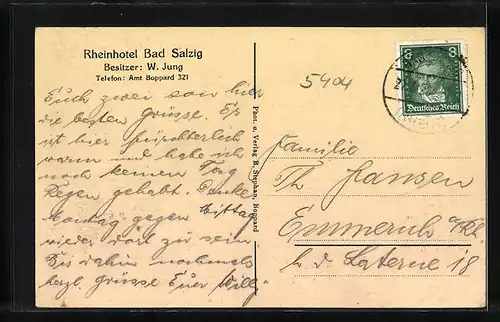 Rheinhotel Bad Salzig
Besitzer: W. Jung
Telefon: Amt Boppard 321
Euch zwei von hier
die besten Grüsse. Es
ist hier fürchterlich
warm und habe ich
noch keinen Tag
Regen gehabt. Denke
Montag gegen Mittag
wieder dort zu sein
Bis dahin nochmals
herzl. Grüsse Euer Willy
Phot. u. Verlag B. Stephan, Boppard
5404
8 8
Deutsches Reich
Familie
Th. Jansen
Emmerich a/Rh.
h. d. Laterne 18